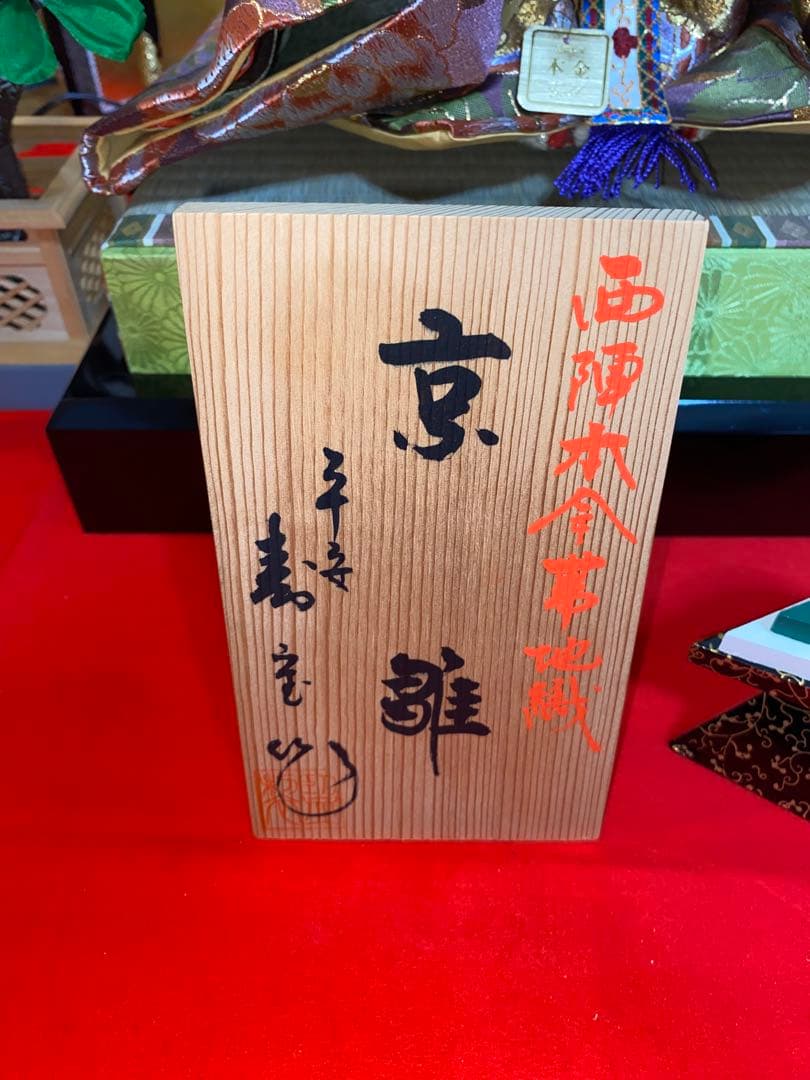 西陣本金帯地織
京雛
平安
寿宝
本金